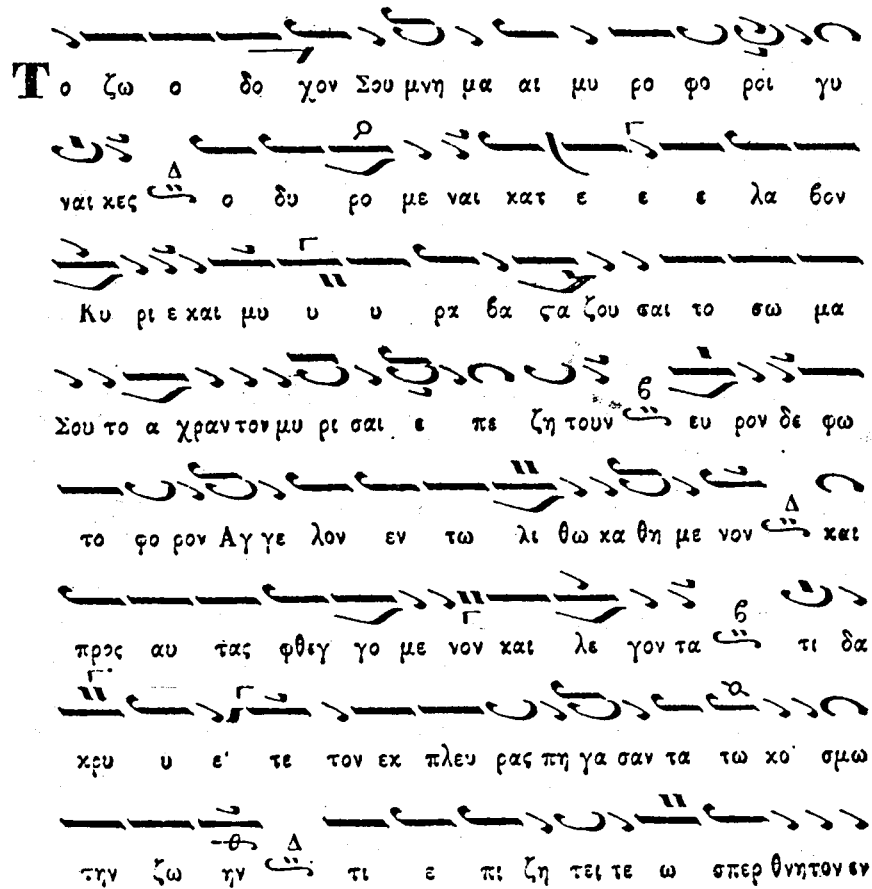 Το ζω ο δο χον Σου μνη μα αι μυ ρο φο ροι γυ
ναι κες Δ ο δυ ρο με ναι κατ ε ε ε λα βον
Κυ ρι ε και μυ υ υ ρα βα ςα ζου σαι το σω μα
Σου το α χραν τον μυ ρι σαι ε πε ζη τουν β ευ ρον δε φω
το φο ρον Αγ γε λον εν τω λι θω κα θη με νον Δ και
προς αυ τας φθεγ γο με νον και λε γον τα β τι δα
κρυ υ ε τε τον εκ πλευ ρας πη γα σαν τα τω κο σμω
την ζω ην Δ τι ε πι ζη τει τε ω σπερ θνητον εν